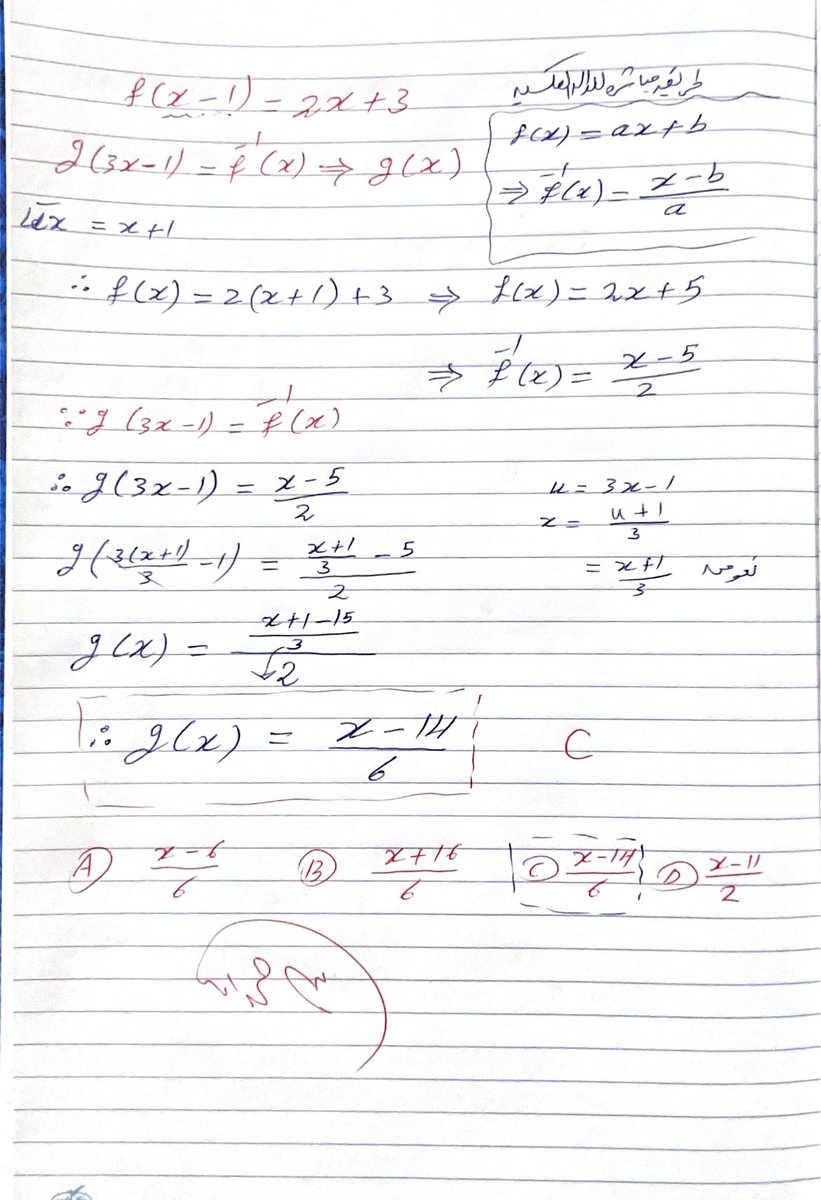 f(x-1) = 2x+3
طريقة مباشرة للدالة العكسية
g(3x-1) = f⁻¹(x) ⇒ g(x)
f(x) = ax+b
⇒ f⁻¹(x) = (x-b)/a
x = x+1
∴ f(x) = 2(x+1)+3 ⇒ f(x) = 2x+5
⇒ f⁻¹(x) = (x-5)/2
∵ g(3x-1) = f⁻¹(x)
∴ g(3x-1) = (x-5)/2
u = 3x-1
x = (u+1)/3
= (x+1)/3 نعوض
g(3(x+1)/3 - 1) = ((x+1)/3 - 5)/2
g(x) = ((x+1-15)/3)/2
∴ g(x) = (x-14)/6 C
Ⓐ (x-6)/6 Ⓑ (x+16)/6 Ⓒ (x-14)/6 Ⓓ (x-11)/2